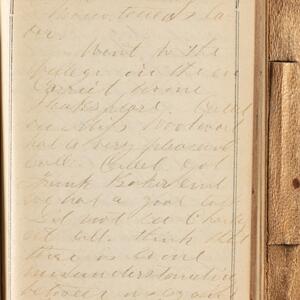 Went to the
village in the eve
Carried home
Shakespeare. Called
on Miss Woodward
had a very pleasant
call. Called got
Frank Baker and
we had a good
Did not see Charly
at all. think that
there is some
misunderstanding
between us